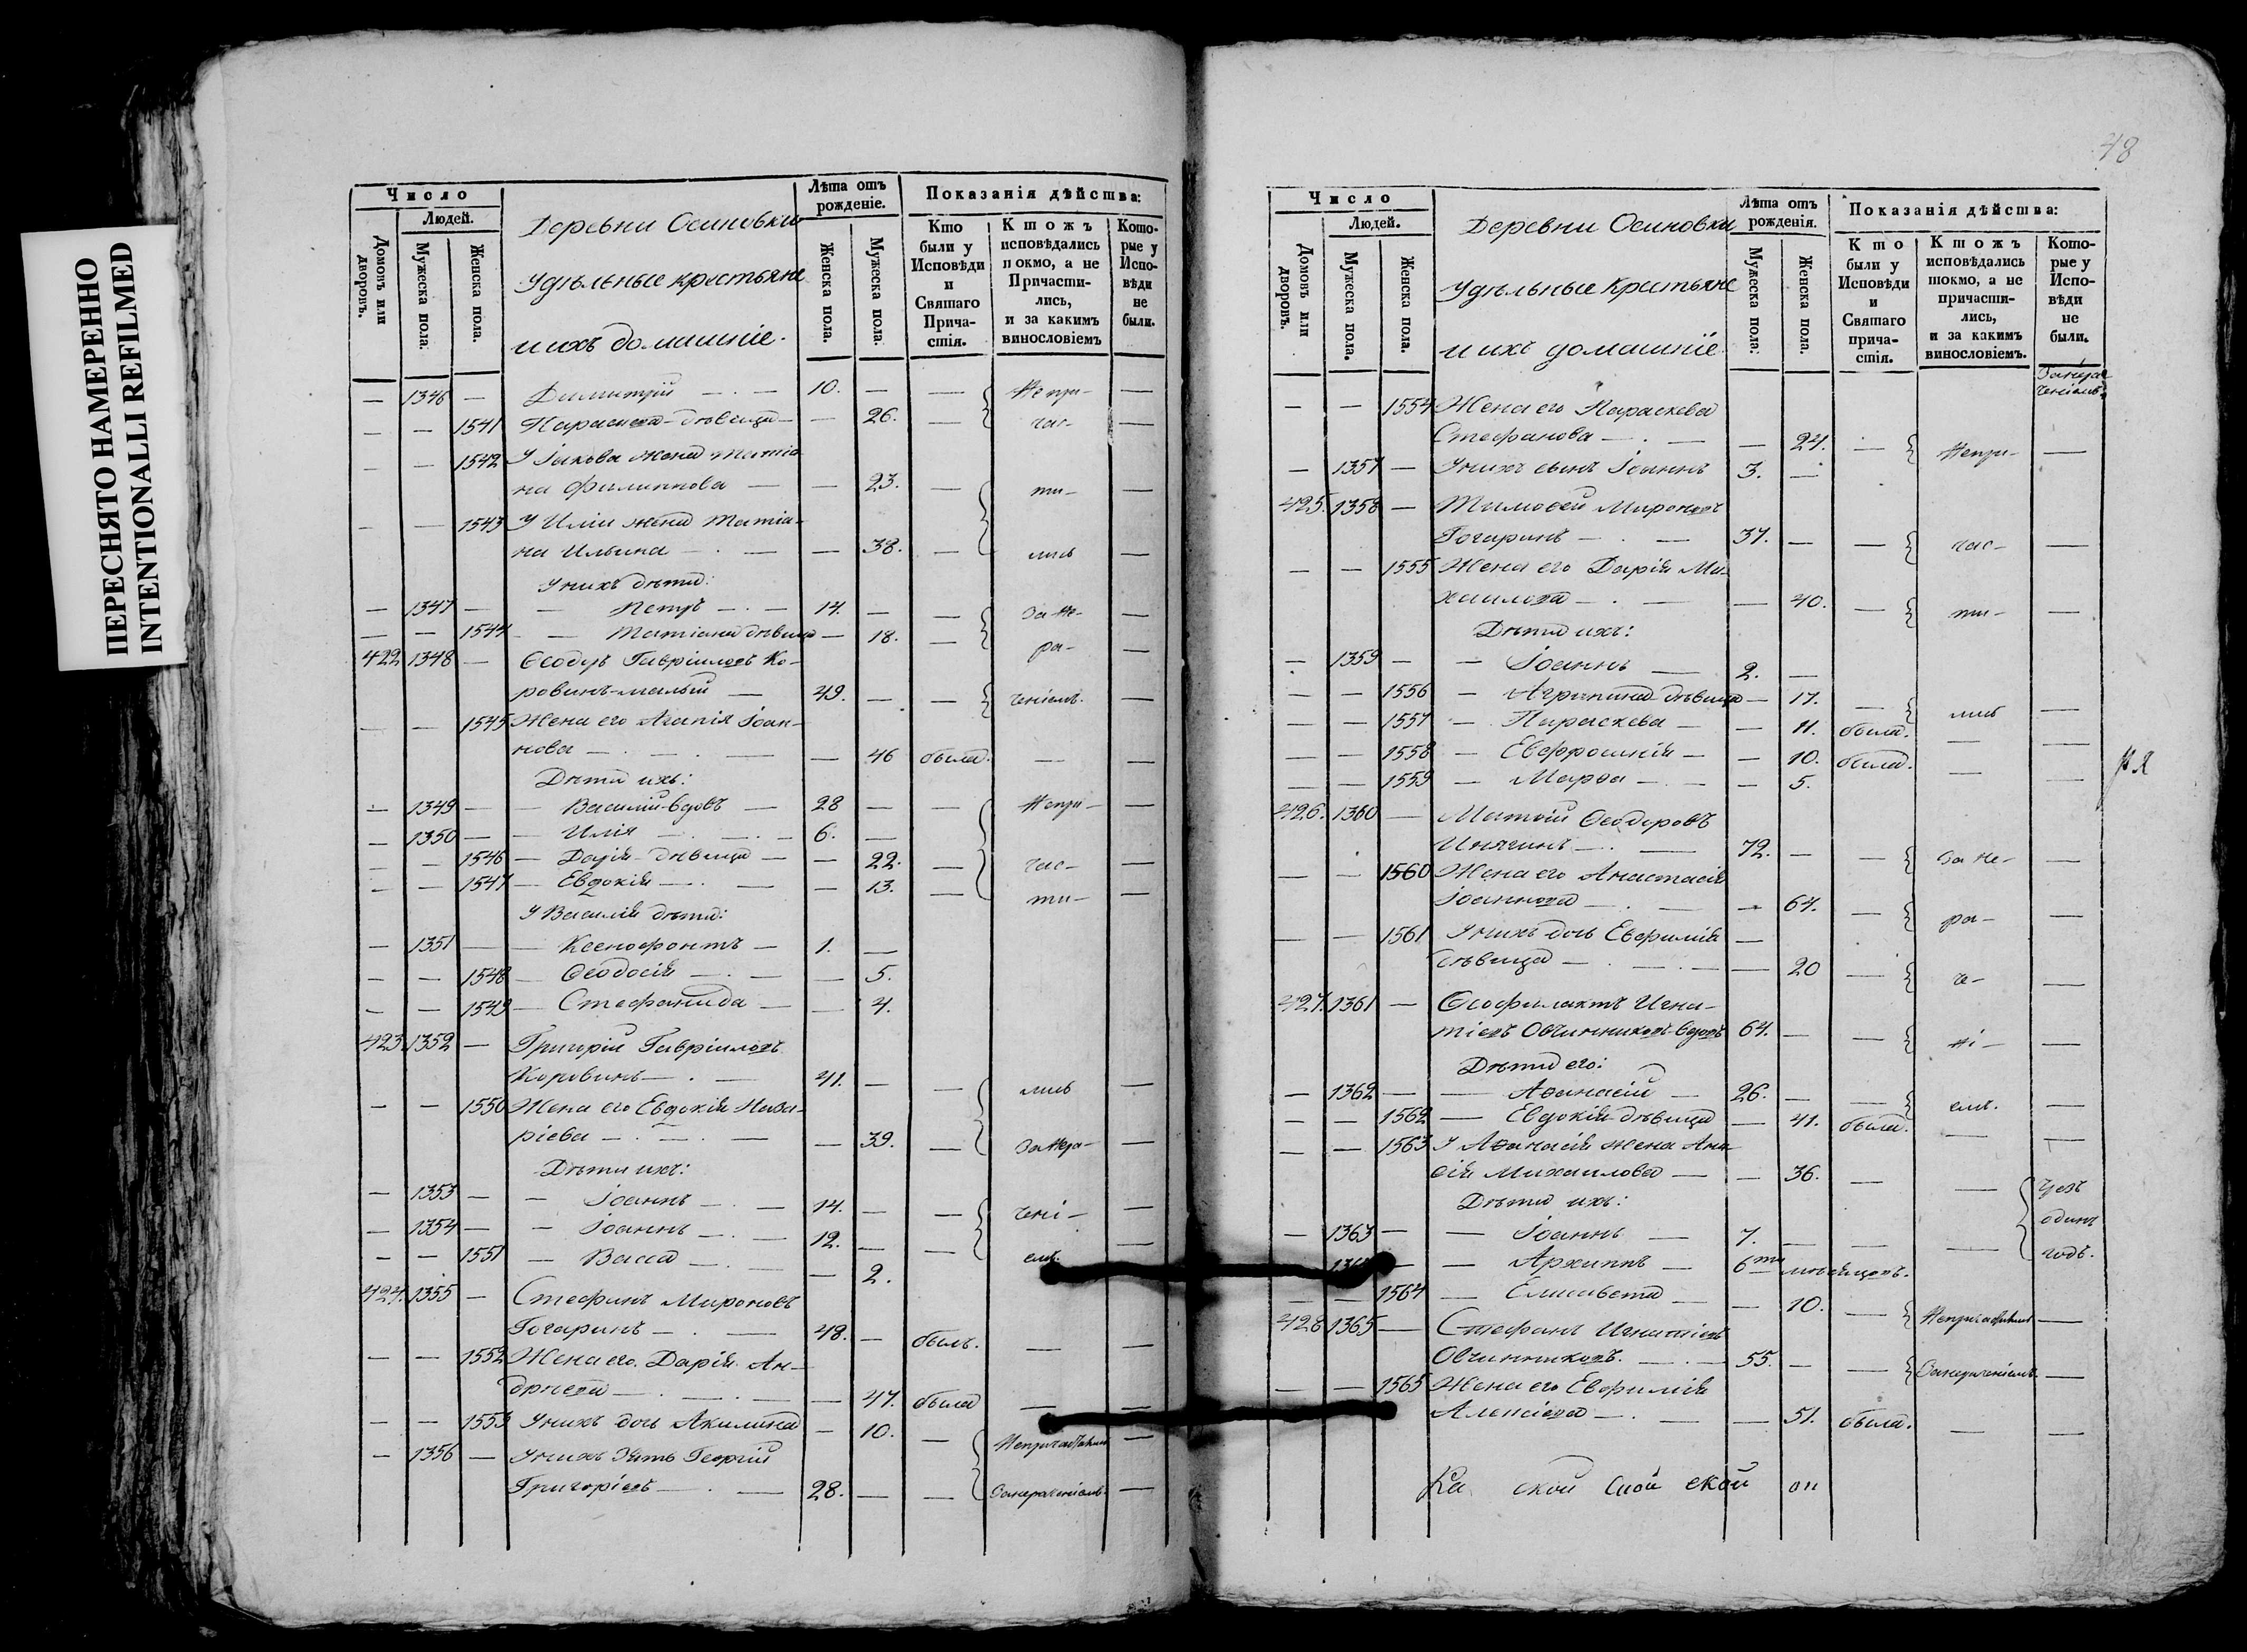 ПЕРЕСНЯТО НАМЕРЕННО
INTENTIONALLI REFILMED
Число
Людей.
Домовъ или дворовъ.
Мужеска пола.
Женска пола.
Деревни Осиновки
Удѣльные крестьяне
и ихъ домашніе.
Лѣта отъ рожденіе.
Женска пола.
Мужеска пола.
Показанія дѣйства:
Кто были у Исповѣди и Святаго Причастія.
Ктожъ исповѣдались покмо, а не Причастились, и за какимъ винословіемъ
Которые у Исповѣди не были.
— 1346 — Димитрій — 10. — — Непри- —
— — 1541 Параскева дѣвица — — 26. — час- —
— — 1542 У Іакова жена Татіа
на Филиппова — — 23. — ти- —
— — 1543 У Иліи жена Татіа-
на Ильина — — 38. — лись —
У нихъ дѣти:
— 1347 — — Петръ — 14. — — За не- —
— — 1544 — Татіана дѣвица — 18. — ра- —
422 1348 — Ѳеодоръ Гавріиловъ Ко-
ровинъ-малый — 49. — — ченіемъ. —
— — 1545 Жена его Агапія Іоан-
нова — — 46 была. — —
Дѣти ихъ:
— 1349 — — Василій-вдовъ — 28 — — Непри- —
— 1350 — — Илія — 6. —
— — 1546 — Дарія-дѣвица — — 22. — час- —
— — 1547 — Евдокія — — 13. — ти- —
У Василія дѣти:
— 1351 — — Ксенофонтъ — 1. —
— — 1548 — Ѳеодосія — — 5.
— — 1549 — Стефанида — — 4.
423. 1352 — Григорій Гавріиловъ
Коровинъ — 41. — — лись —
— — 1550 Жена его Евдокія Наза-
ріева — — 39. — За нера- —
Дѣти ихъ:
— 1353 — — Іоаннъ — 14. — — чені- —
— 1354 — — Іоаннъ — 12. — — емъ. —
— — 1551 — Васса — — 2.
424. 1355 — Стефанъ Мироновъ
Гогаринъ — 48. — былъ. — —
— — 1552 Жена его Дарія Ан-
дреева — — 47. была — —
— — 1553 У нихъ дочь Акилина — 10. —
— 1356 — У нихъ Зять Георгій
Григоріевъ — 28. — — Занераченіемъ —
48
Число
Людей.
Домовъ или дворовъ.
Мужеска пола.
Женска пола.
Деревни Осиновки
Удѣльные Крестьяне
и ихъ домашніе
Лѣта отъ рожденія.
Мужеска пола:
Женска пола.
Показанія дѣйства:
Кто были у Исповѣди и Святаго причастія.
Ктожъ исповѣдались токмо, а не причастились, и за какимъ винословіемъ.
Которые у Исповѣди не были.
Занера
ченіемъ.
— — 1554 Жена его Параскева
Стефанова — — 24. — Непри- —
— 1357 — У нихъ сынъ Іоаннъ 3. —
425. 1358 — Тимоѳей Мироновъ
Гогаринъ — 37. — — час- —
— — 1555 Жена его Дарія Ми-
хаилова — — 40. — ти- —
Дѣти ихъ:
— 1359 — — Іоаннъ — 2. —
— — 1556 — Агрипина дѣвица — 17. — лись —
— — 1557 — Параскева — — 11. была. — —
— — 1558 — Евфросинія — — 10. была. — —
— — 1559 — Марѳа — — 5.
426. 1360 — Матѳій Ѳеодоровъ
Инягинъ — 72. — — За не- —
— — 1560 Жена его Анастасія
Іоаннова — — 64. — ра- —
— — 1561 У нихъ дочь Евфимія —
дѣвица — — 20 — че- —
427. 1361 — Ѳеофилактъ Игна-
тіевъ Овчинниковъ-вдовъ 64. — — ні- —
Дѣти его:
— 1362 — — Аѳанасій — 26. — — емъ. —
— — 1562 — Евдокія-дѣвица — 41. была. — —
— — 1563 У Аѳанасія жена Ани-
сія Михаилова — — 36. — — чрезъ
Дѣти ихъ: одинъ
— 1363 — — Іоаннъ — 7. — — — годъ.
— — Архиппъ — 6ти мѣсяцовъ.
— — 1564 — Елисавета — — 10. —
428 1365 — Стефанъ Игнатіевъ
Овчинниковъ. — 55. — — Занераченіемъ. —
— — 1565 Жена его Евфимія
Алексіева — — 51. была. — —
Ка ской ской ской он